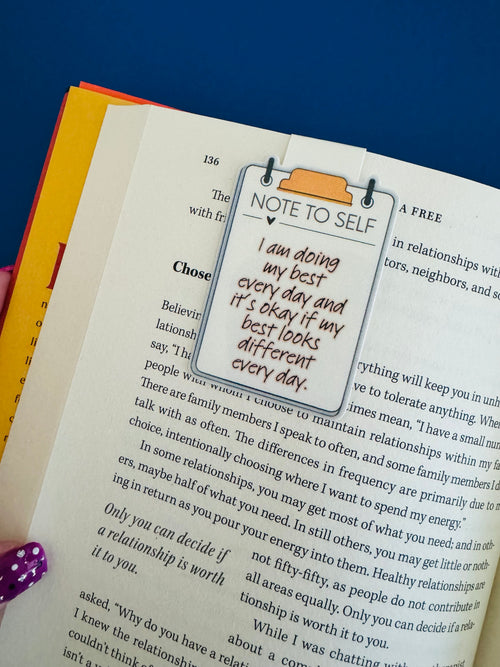 136
A FREE
The
with fr
in relationships with
tors, neighbors, and so
NOTE TO SELF
I am doing
my best
every day and
it's okay if my
best looks
different
every day.
Chose
Believin
lationsh
say, "I ha
rything will keep you in unh
people with whom I choose to
ve to tolerate anything. When
There are family members I speak to often, and some family members I d
talk with as often. The differences in frequency are primarily due to m
choice, intentionally choosing where I want to spend my energy."
In some relationships, you may get most of what you need; and in oth-
ers, maybe half of what you need. In still others, you may get little or noth-
ing in return as you pour your energy into them. Healthy relationships are
Only you can decide if
a relationship is worth
it to you.
not fifty-fifty, as people do not contribute in
all areas equally. Only you can decide if a rela-
tionship is worth it to you.
While I was chatting
asked, "Why do you have a relati
about a com
I knew the relationship
couldn't think of
isn't a